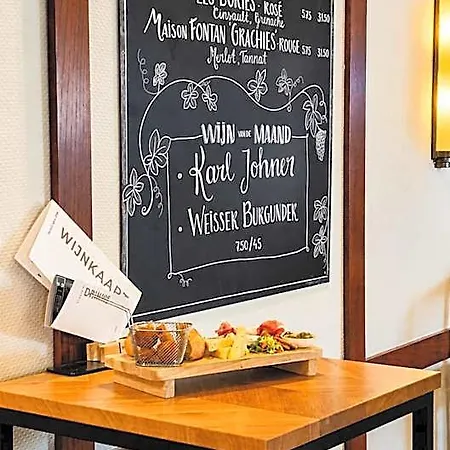 LES BORIES - ROSÉ 575 31.50
Cinsault, Grenache
MAISON FONTAN 'GRACHIES' - ROUGE 575 31.50
Merlot, Tannat
WIJN VAN DE MAAND
• Karl Johner
• WEISSER BURGUNDER
7.50/45
WIJNKAART